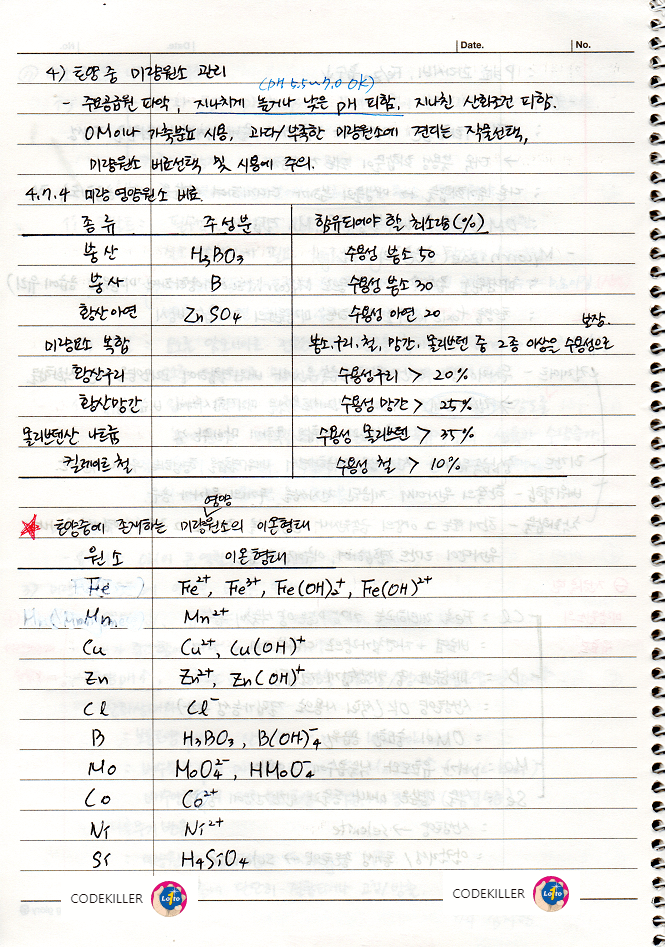 Date. No.
4) 토양 중 미량원소 관리
(pH 5.5~7.0 OK)
- 주요공급원 파악, 지나치게 높거나 낮은 pH 피함, 지나친 산화조건 피함.
OM이나 가축분뇨 시용, 과다/부족한 미량원소에 견디는 작물선택,
미량원소 비료선택 및 시용에 주의.
4.7.4 미량 영양원소 비료.
종류 주성분 함유되어야 할 최소량(%)
붕산 H3BO3 수용성 붕소 50
붕사 B 수용성 붕소 30
황산아연 ZnSO4 수용성 아연 20
보장.
미량요소 복합 붕소.구리.철, 망간. 몰리브덴 중 2종 이상을 수용성으로
황산구리 수용성구리 > 20%
황산망간 수용성 망간 > 25%
몰리브덴산 나트륨 수용성 몰리브덴 > 35%
킬레이트 철 수용성 철 > 10%
영양
★ 토양중에 존재하는 미량원소의 이온형태
원소 이온형태
Fe Fe2+, Fe3+, Fe(OH)2+, Fe(OH)2+
Mn Mn2+
Cu Cu2+, Cu(OH)+
Zn Zn2+, Zn(OH)+
Cl Cl-
B H3BO3, B(OH)4-
Mo MoO42-, HMoO4-
Co Co2+
Ni Ni2+
Si H4SiO4
CODEKILLER Lotto CODEKILLER Lotto